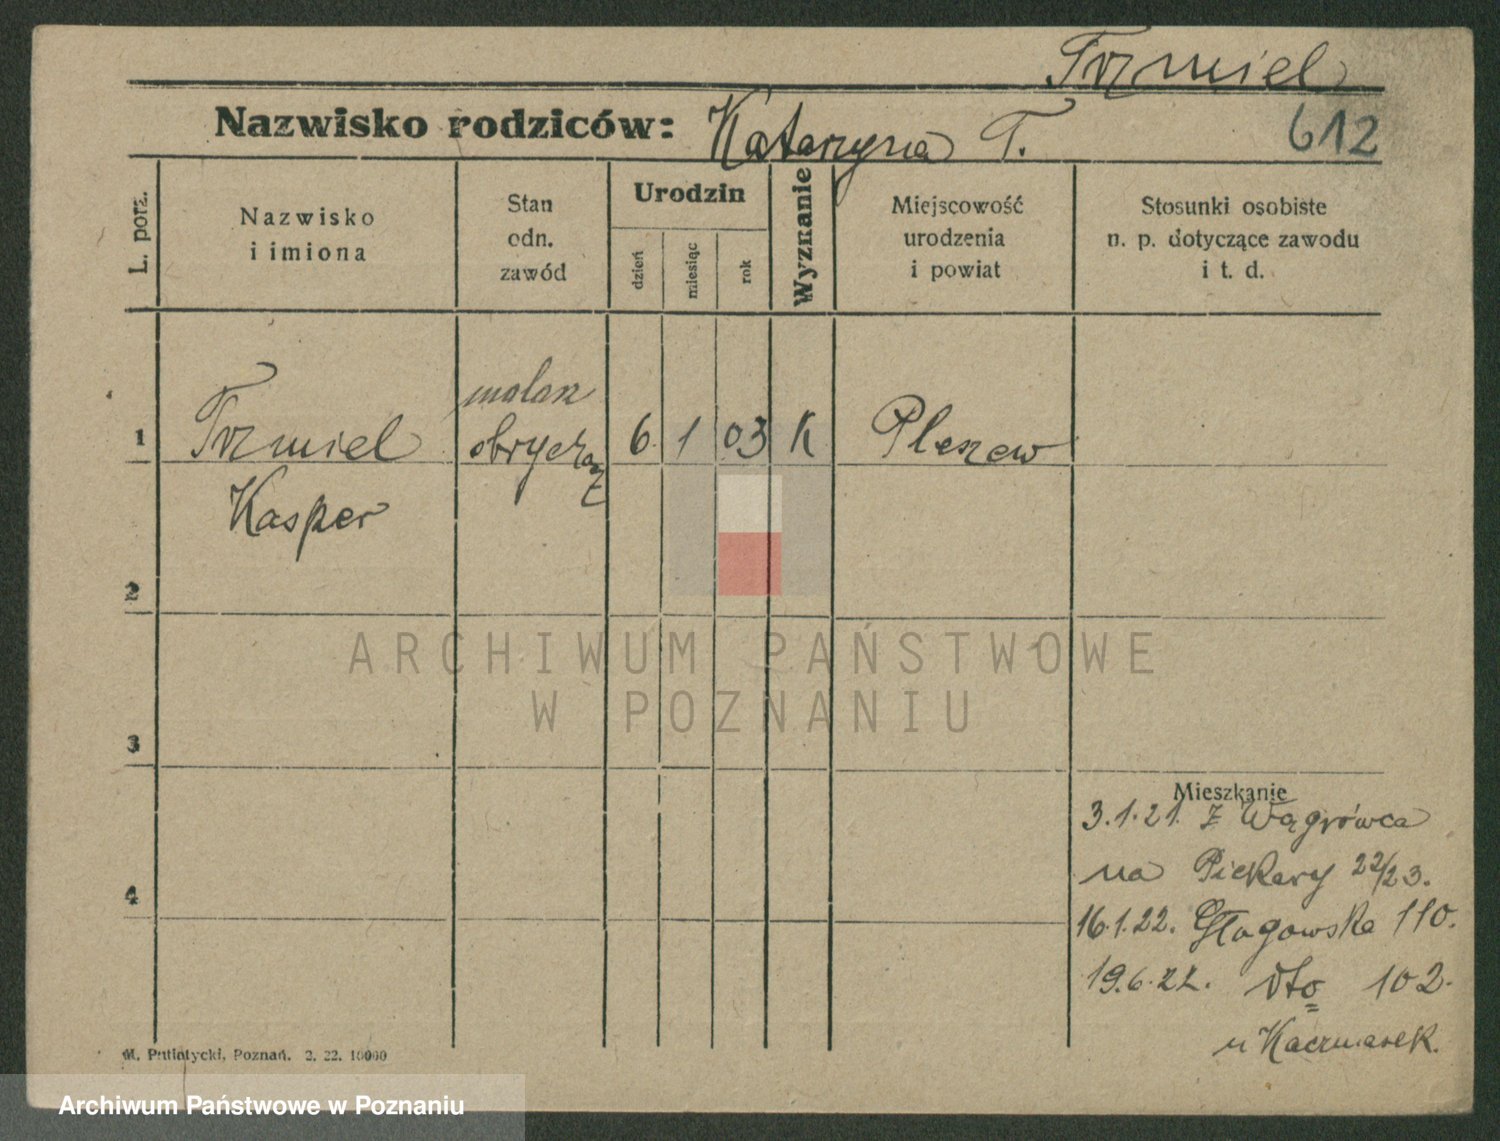 Trzmiel
Nazwisko rodziców: Katarzyna T. 612
L. porz.
Nazwisko
i imiona
Stan
odn.
zawód
Urodzin
dzień
miesiąc
rok
Wyznanie
Miejscowość
urodzenia
i powiat
Stosunki osobiste
n. p. dotyczące zawodu
i t. d.
malarz
1 Trzmiel 6. 1 03 K Pleszew
Kasper
2
ARCHIWUM PAŃSTWOWE
W POZNANIU
3
Mieszkanie
3.1.21. z Wągrówca
na Piekary 22/23.
4
16.1.22. Głogowska 110.
19.6.22. dto 102.
u Kaczmarek.
M. Putiatycki, Poznań. 2. 22. 10000
Archiwum Państwowe w Poznaniu